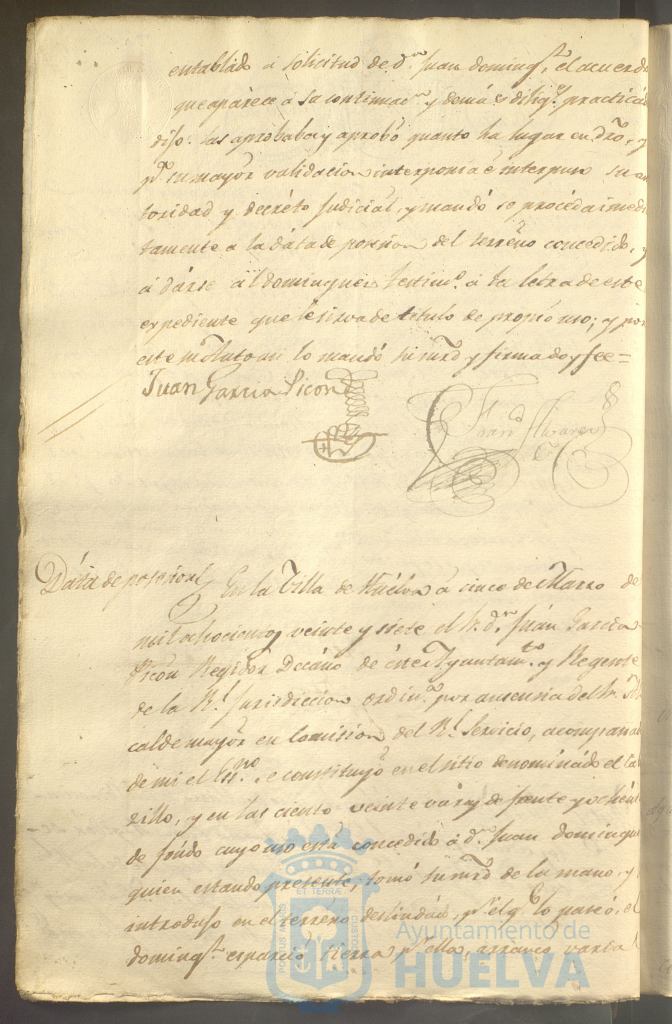 entablado a solicitud de dn. Juan Doming.z, el acuerdo
que aparece a su continuac.n y demas dilig.s practicad
dijo: las aprobaba y aprobó quanto ha lugar en dro, y
p.a su mayor validacion interponia é interpuso su au
toridad y decreto judicial, y mandó se proceda inmedia
tamente a la data de posesion del terreno concedido, y
á darse al Dominguez testim.o a la letra de este
expediente que le sirva de titulo de propio uso; y por
este su Auto asi lo mandó su mrd y firma doy fee =
Juan Garcia Picon
Fran.co Alvarez
Data de posesion
En la Villa de Huelva á cinco de Marzo de
mil ochocientos veinte y siete el Sr. dn. Juan Garcia
Picon Regidor Decano de este Ayuntam.to y Regente
de la R.l Jurisdiccion ordin.a por ausencia del Sr. Al
calde mayor en comision del R.l Servicio, acompañad
de mi el Ess.no se constituyó en el sitio denominado el Ca
rillo, y en las ciento veinte varas de frente y ochent
de fondo cuyo uso está concedido á dn. Juan Domingu
quien estando presente, tomó su mrd de la mano, y
introdujo en el terreno deslindado, p.r el q.e lo paseó, el
Doming.z esparció tierra p.r ello, arrancó varia
PORTUS MARIS
ET TERRAE
CUSTODIA
Ayuntamiento de
HUELVA